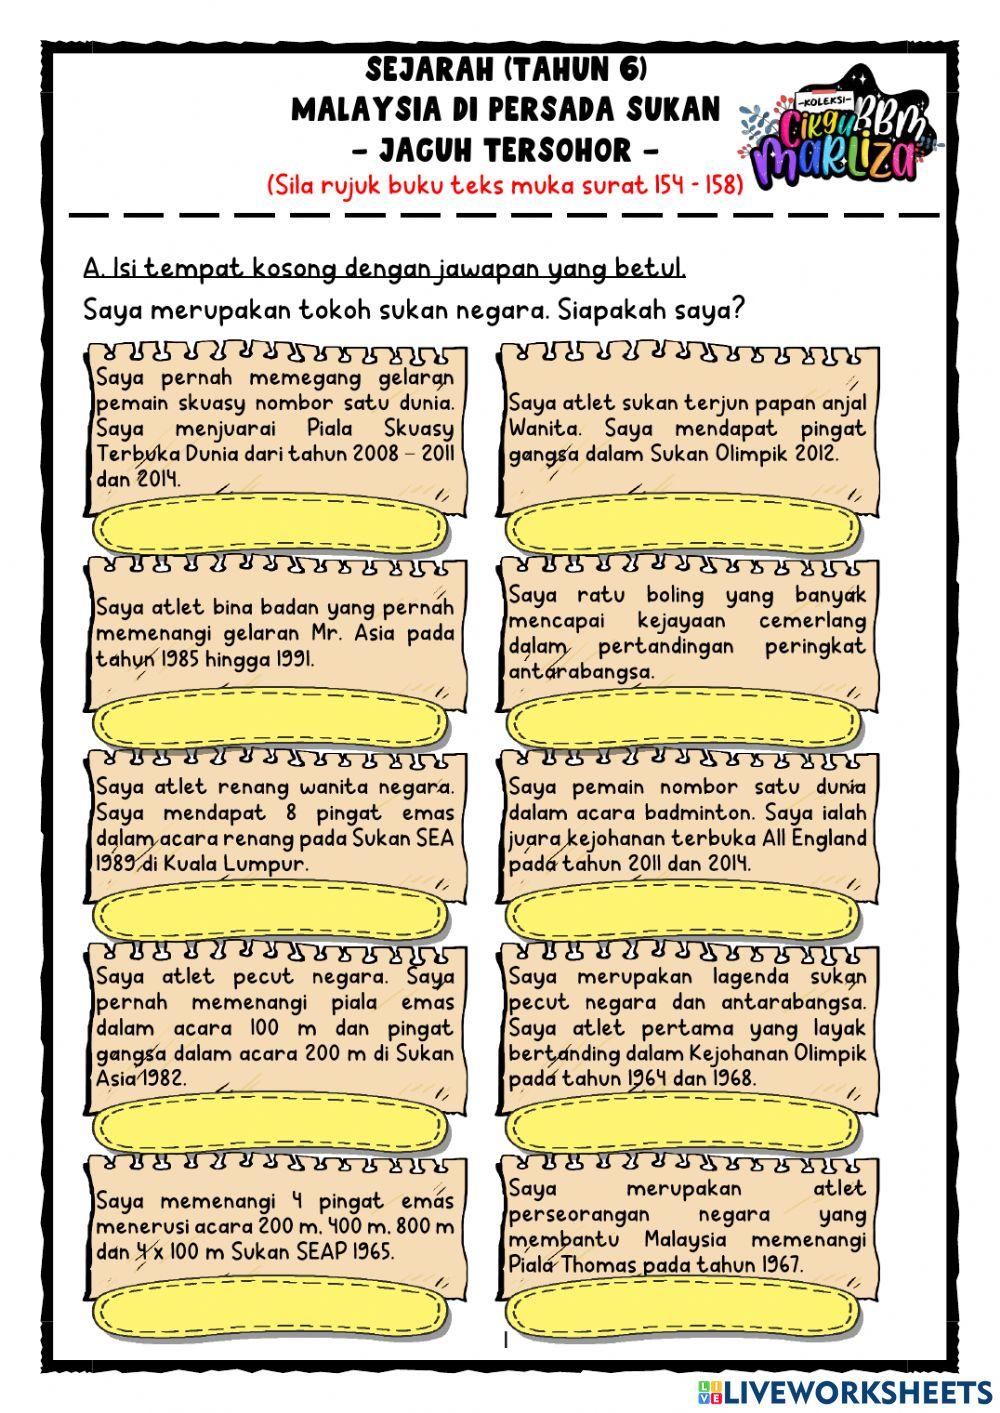 SEJARAH (TAHUN 6)
MALAYSIA DI PERSADA SUKAN
- JAGUH TERSOHOR -
(Sila rujuk buku teks muka surat 154 - 158)
-KOLEKSI-
BBM
Cikgu
Marliza
A. Isi tempat kosong dengan jawapan yang betul.
Saya merupakan tokoh sukan negara. Siapakah saya?
Saya pernah memegang gelaran
pemain skuasy nombor satu dunia.
Saya menjuarai Piala Skuasy
Terbuka Dunia dari tahun 2008 – 2011
dan 2014.
Saya atlet sukan terjun papan anjal
Wanita. Saya mendapat pingat
gangsa dalam Sukan Olimpik 2012.
Saya atlet bina badan yang pernah
memenangi gelaran Mr. Asia pada
tahun 1985 hingga 1991.
Saya ratu boling yang banyak
mencapai kejayaan cemerlang
dalam pertandingan peringkat
antarabangsa.
Saya atlet renang wanita negara.
Saya mendapat 8 pingat emas
dalam acara renang pada Sukan SEA
1989 di Kuala Lumpur.
Saya pemain nombor satu dunia
dalam acara badminton. Saya ialah
juara kejohanan terbuka All England
pada tahun 2011 dan 2014.
Saya atlet pecut negara. Saya
pernah memenangi piala emas
dalam acara 100 m dan pingat
gangsa dalam acara 200 m di Sukan
Asia 1982.
Saya merupakan lagenda sukan
pecut negara dan antarabangsa.
Saya atlet pertama yang layak
bertanding dalam Kejohanan Olimpik
pada tahun 1964 dan 1968.
Saya memenangi 4 pingat emas
menerusi acara 200 m, 400 m, 800 m
dan 4 x 100 m Sukan SEAP 1965.
Saya merupakan atlet
perseorangan negara yang
membantu Malaysia memenangi
Piala Thomas pada tahun 1967.
1
LIVE LIVEWORKSHEETS